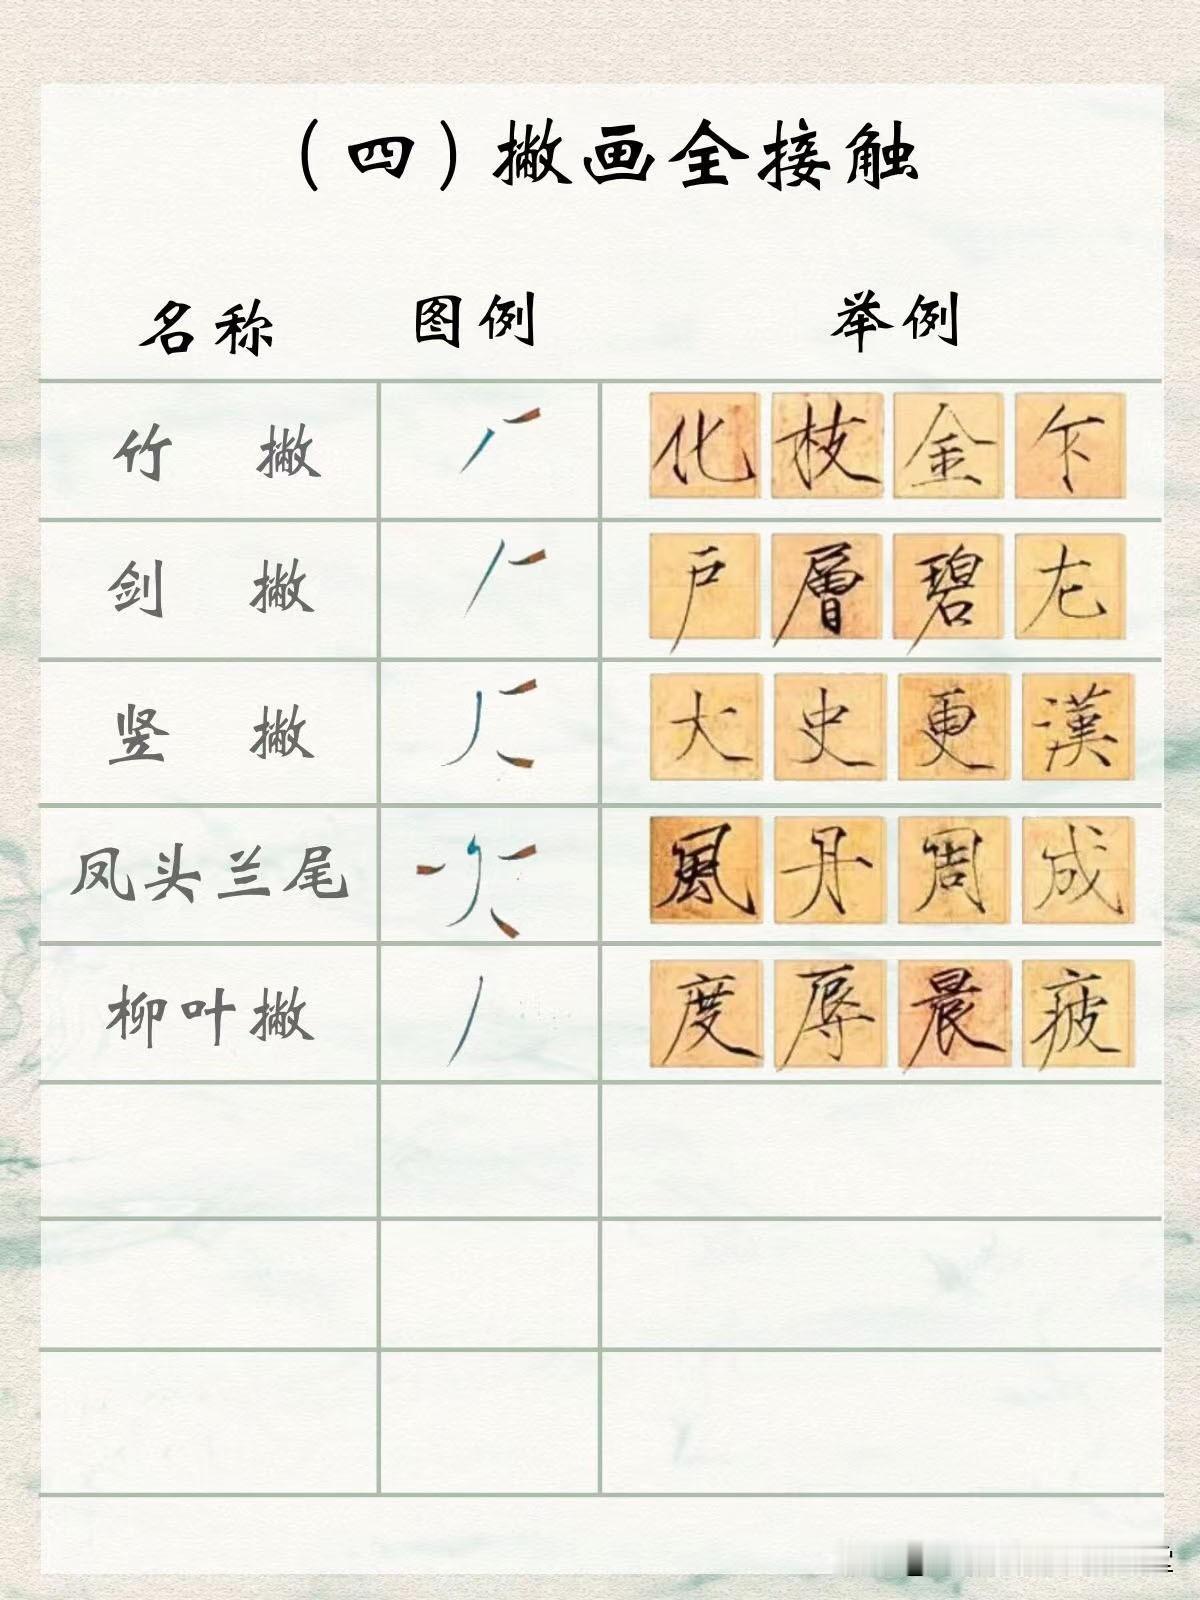 （四）撇画全接触
名称 图例 举例
竹撇 化枝金乍
剑撇 戶層碧左
竖撇 大史更漢
凤头兰尾 風丹周成
柳叶撇 度辱晨疲